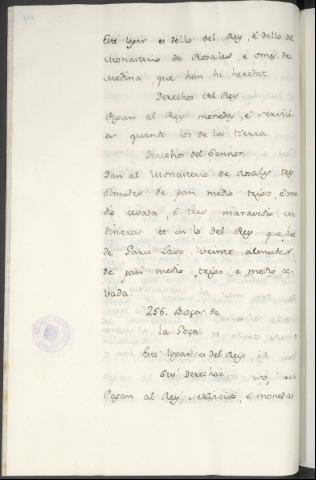 Este logar es dello del Rey, è dello del
Monasterio de Rosales, è omes de
Medina, que han hi heredat.
Derechos del Rey
Pagan al Rey monedas, è servici
os quando los de la tierra.
Derechos del Sennor
Dan al Monasterio de Rosales tres
almudes de pan medio trigo, è me
dio cevada, è tres maravedis en
dineros et en lo del Rey que
de Garci Laso veinte almudes
de pan medio trigo, e medio ce
vada.
256. Boçar de
la Poça
Este logar es del Rey
Sus Derechos
Pagan al Rey servicios, è monedas